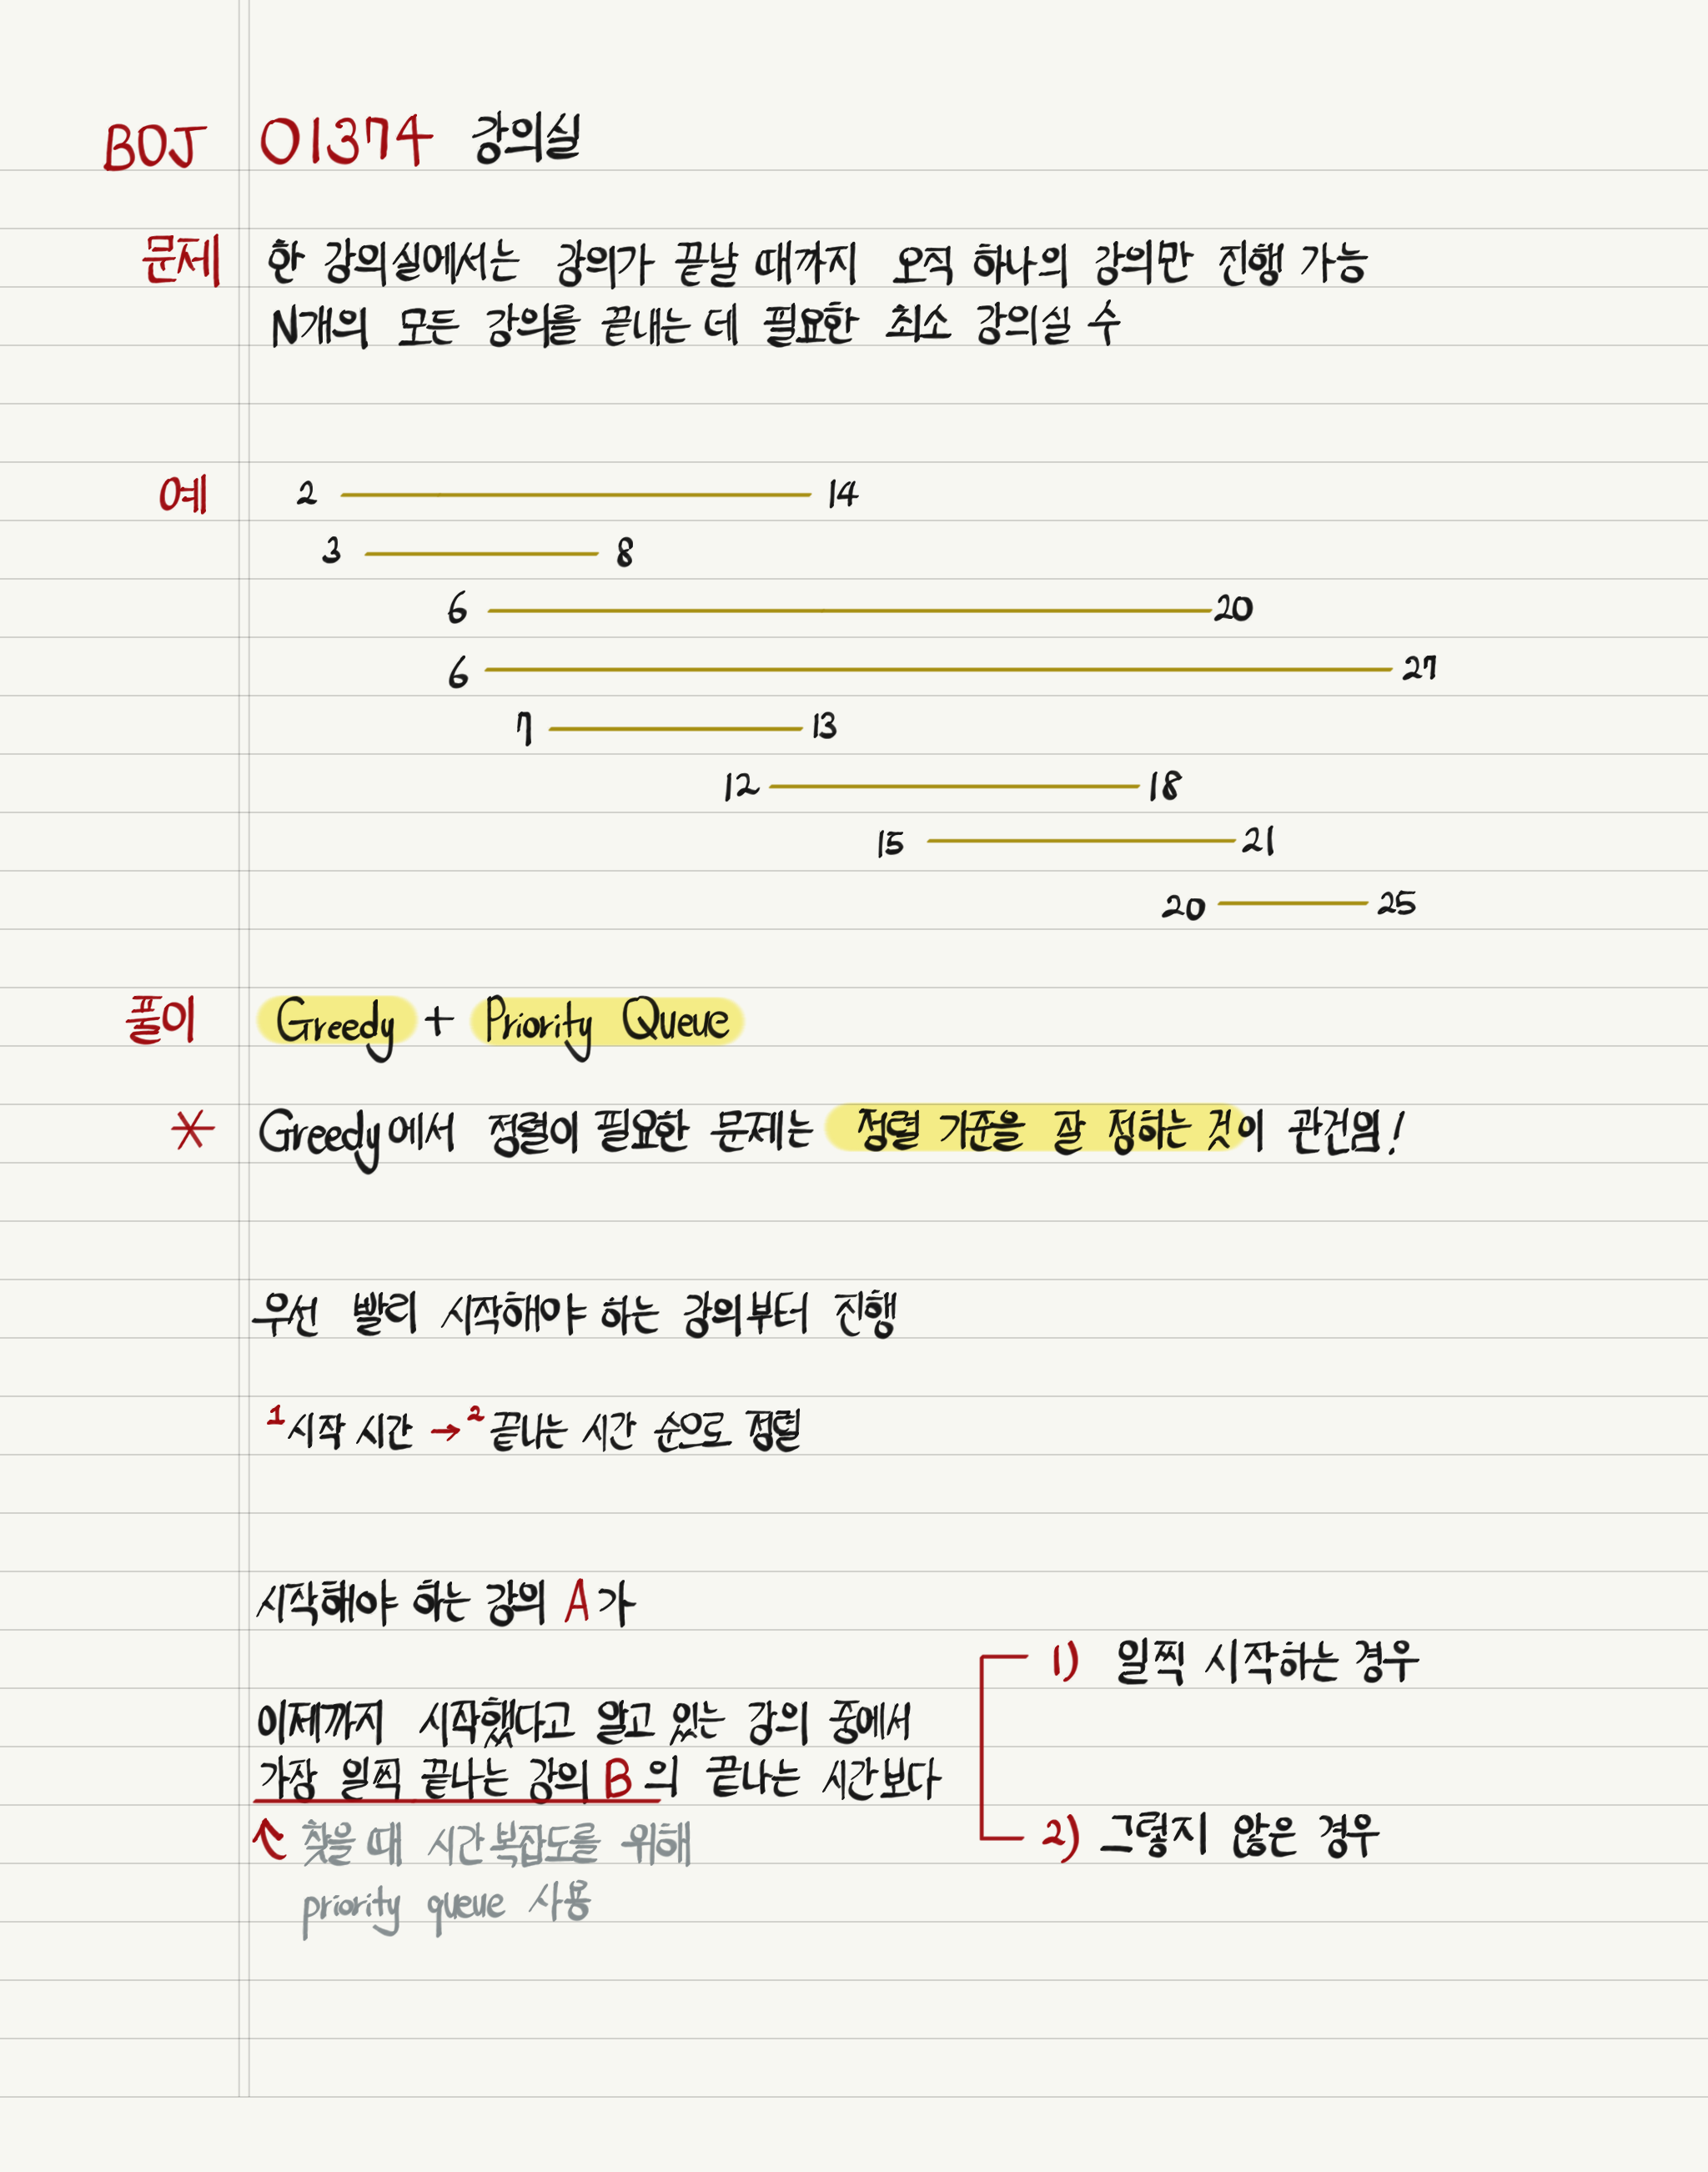 BOJ 01374 강의실
문제 한 강의실에서는 강의가 끝날 때까지 오직 하나의 강의만 진행 가능
N개의 모든 강의를 끝내는 데 필요한 최소 강의실 수
예 2 14
3 8
6 20
6 27
7 13
12 18
15 21
20 25
풀이 Greedy + Priority Queue
* Greedy에서 정렬이 필요한 문제는 정렬 기준을 잘 정하는 것이 관건임!
우선 빨리 시작해야 하는 강의부터 진행
1 시작 시간 → 2 끝나는 시간 순으로 정렬
시작해야 하는 강의 A가
이제까지 시작했다고 알고 있는 강의 중에서
가장 일찍 끝나는 강의 B의 끝나는 시간보다
↑ 찾을 때 시간 복잡도를 위해
priority queue 사용
1) 일찍 시작하는 경우
2) 그렇지 않은 경우